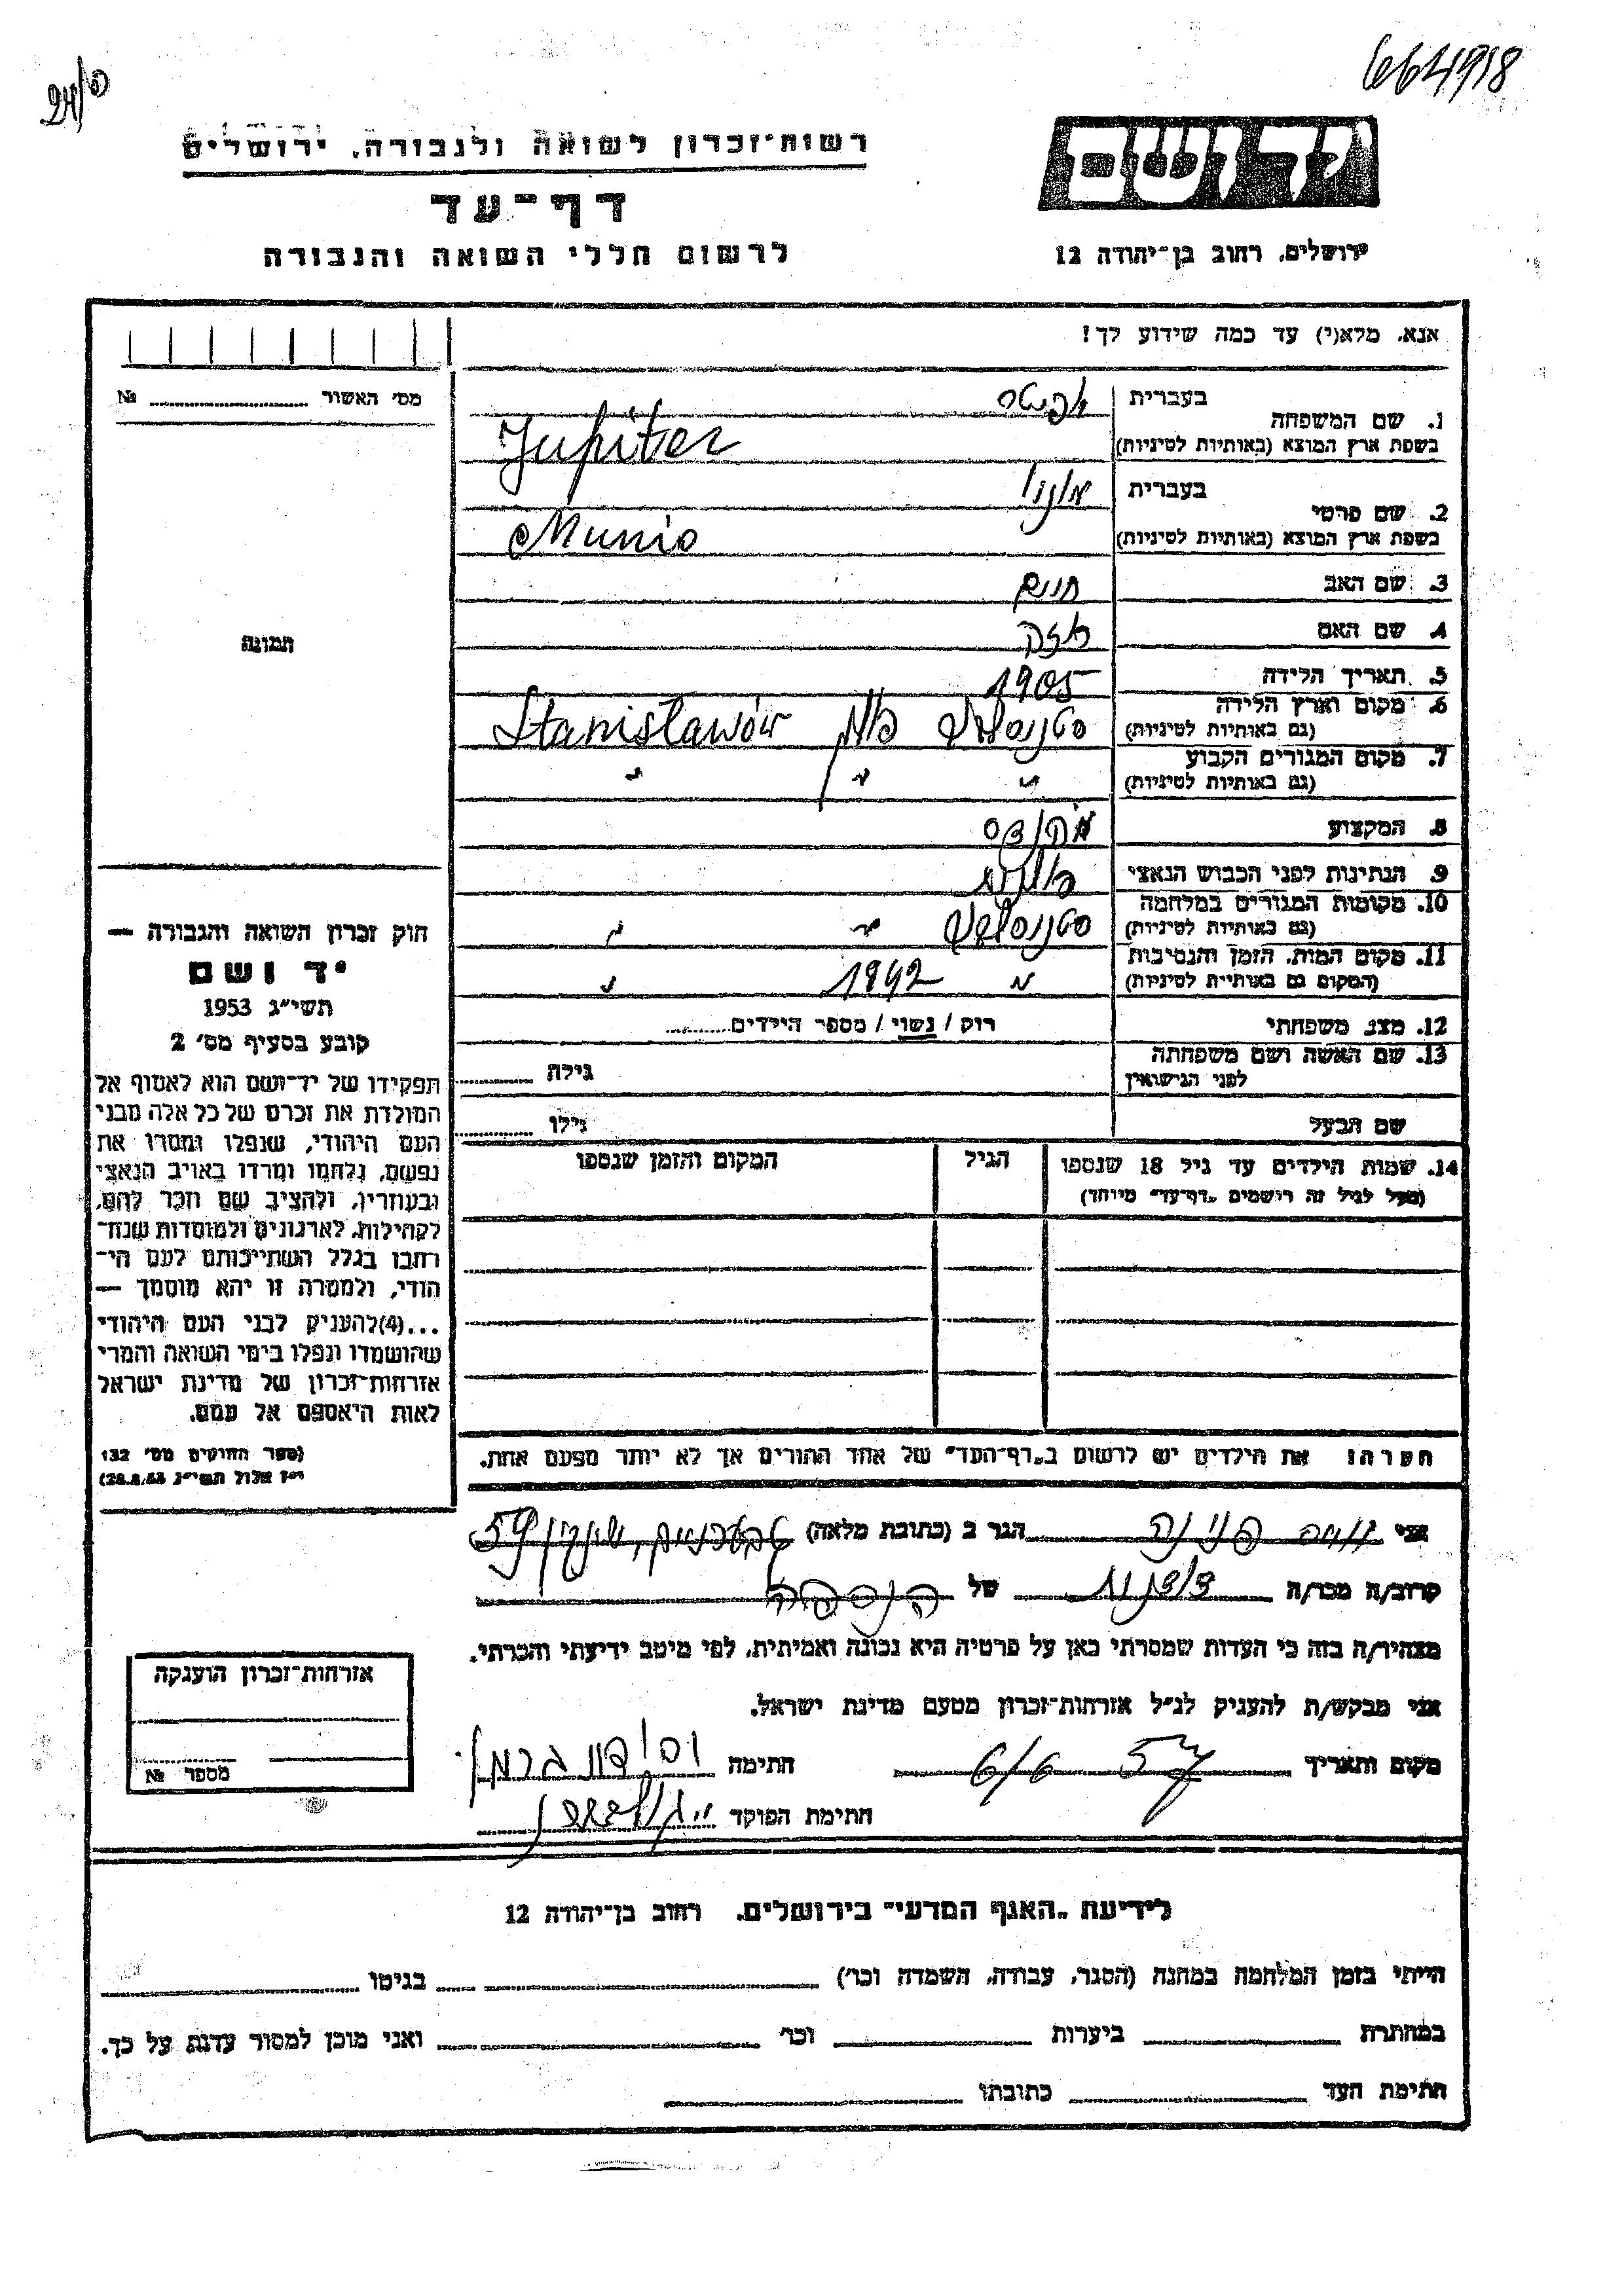 664918
24/פ
רשות־זכרון לשואה ולגבורה, ירושלים
דף־עד
לרשום חללי השואה והגבורה
ידושם
ירושלים, רחוב בן־יהודה 12
אנא, מלא(י) עד כמה שידוע לך!
מס׳ האשור №
1. שם המשפחה בעברית
בשפת ארץ המוצא (באותיות לטיניות) Jupiter
2. שם פרטי בעברית מוניו
בשפת ארץ המוצא (באותיות לטיניות) Munio
3. שם האב חיים
4. שם האם
5. תאריך הלידה 1905
6. מקום וארץ הלידה
(גם באותיות לטיניות) סטניסלבוב פולין Stanisławów
7. מקום המגורים הקבוע
(גם באותיות לטיניות) " " "
8. המקצוע
9. הנתינות לפני הכבוש הנאצי פולנית
10. מקומות המגורים במלחמה
(גם באותיות לטיניות) סטניסלבוב " "
11. מקום המות, הזמן והנסיבות
(המקום גם באותיות לטיניות) " 1942 "
12. מצב משפחתי רוק / נשוי / מספר הילדים
13. שם האשה ושם משפחתה
לפני הנישואין גילה
שם הבעל גילו
14. שמות הילדים עד גיל 18 שנספו הגיל המקום והזמן שנספו
(מעל לגיל זה רישמים „דף־עד״ מיוחד)
תמונה
חוק זכרון השואה והגבורה —
יד ושם
תשי״ג 1953
קובע בסעיף מס׳ 2
תפקידו של יד־ושם הוא לאסוף אל
המולדת את זכרם של כל אלה מבני
העם היהודי, שנפלו ומסרו את
נפשם, נלחמו ומרדו באויב הנאצי
ובעוזריו, ולהציב שם וזכר להם,
לקהילות, לארגונים ולמוסדות שנח־
רבו בגלל השתייכותם לעם הי־
הודי, ולמטרה זו יהא מוסמך —
...(4)להעניק לבני העם היהודי
שהושמדו ונפלו בימי השואה והמרי
אזרחות־זכרון של מדינת ישראל
לאות היאספם אל עמם.
(ספר החוקים מס׳ 132
י״ז אלול תשי״ג 28.8.53)
הערה: את הילדים יש לרשום ב„דף־העד״ של אחד ההורים אך לא יותר מפעם אחת.
אני פנינה הגר ב (כתובת מלאה) 59
קרוב/ה מכר/ה של
מצהיר/ה בזה כי העדות שמסרתי כאן על פרטיה היא נכונה ואמיתית, לפי מיטב ידיעתי והכרתי.
אני מבקש/ת להעניק לנ״ל אזרחות־זכרון מטעם מדינת ישראל.
מקום ותאריך 6/6 57 חתימה
חתימת הפוקד
אזרחות־זכרון הוענקה
מספר №
לידיעת „האגף המדעי״ בירושלים, רחוב בן־יהודה 12
הייתי בזמן המלחמה במחנה (הסגר, עבודה, השמדה וכו׳) בגיטו
במחתרת ביערות וכו׳ ואני מוכן למסור עדות על כך.
חתימת העד כתובתו